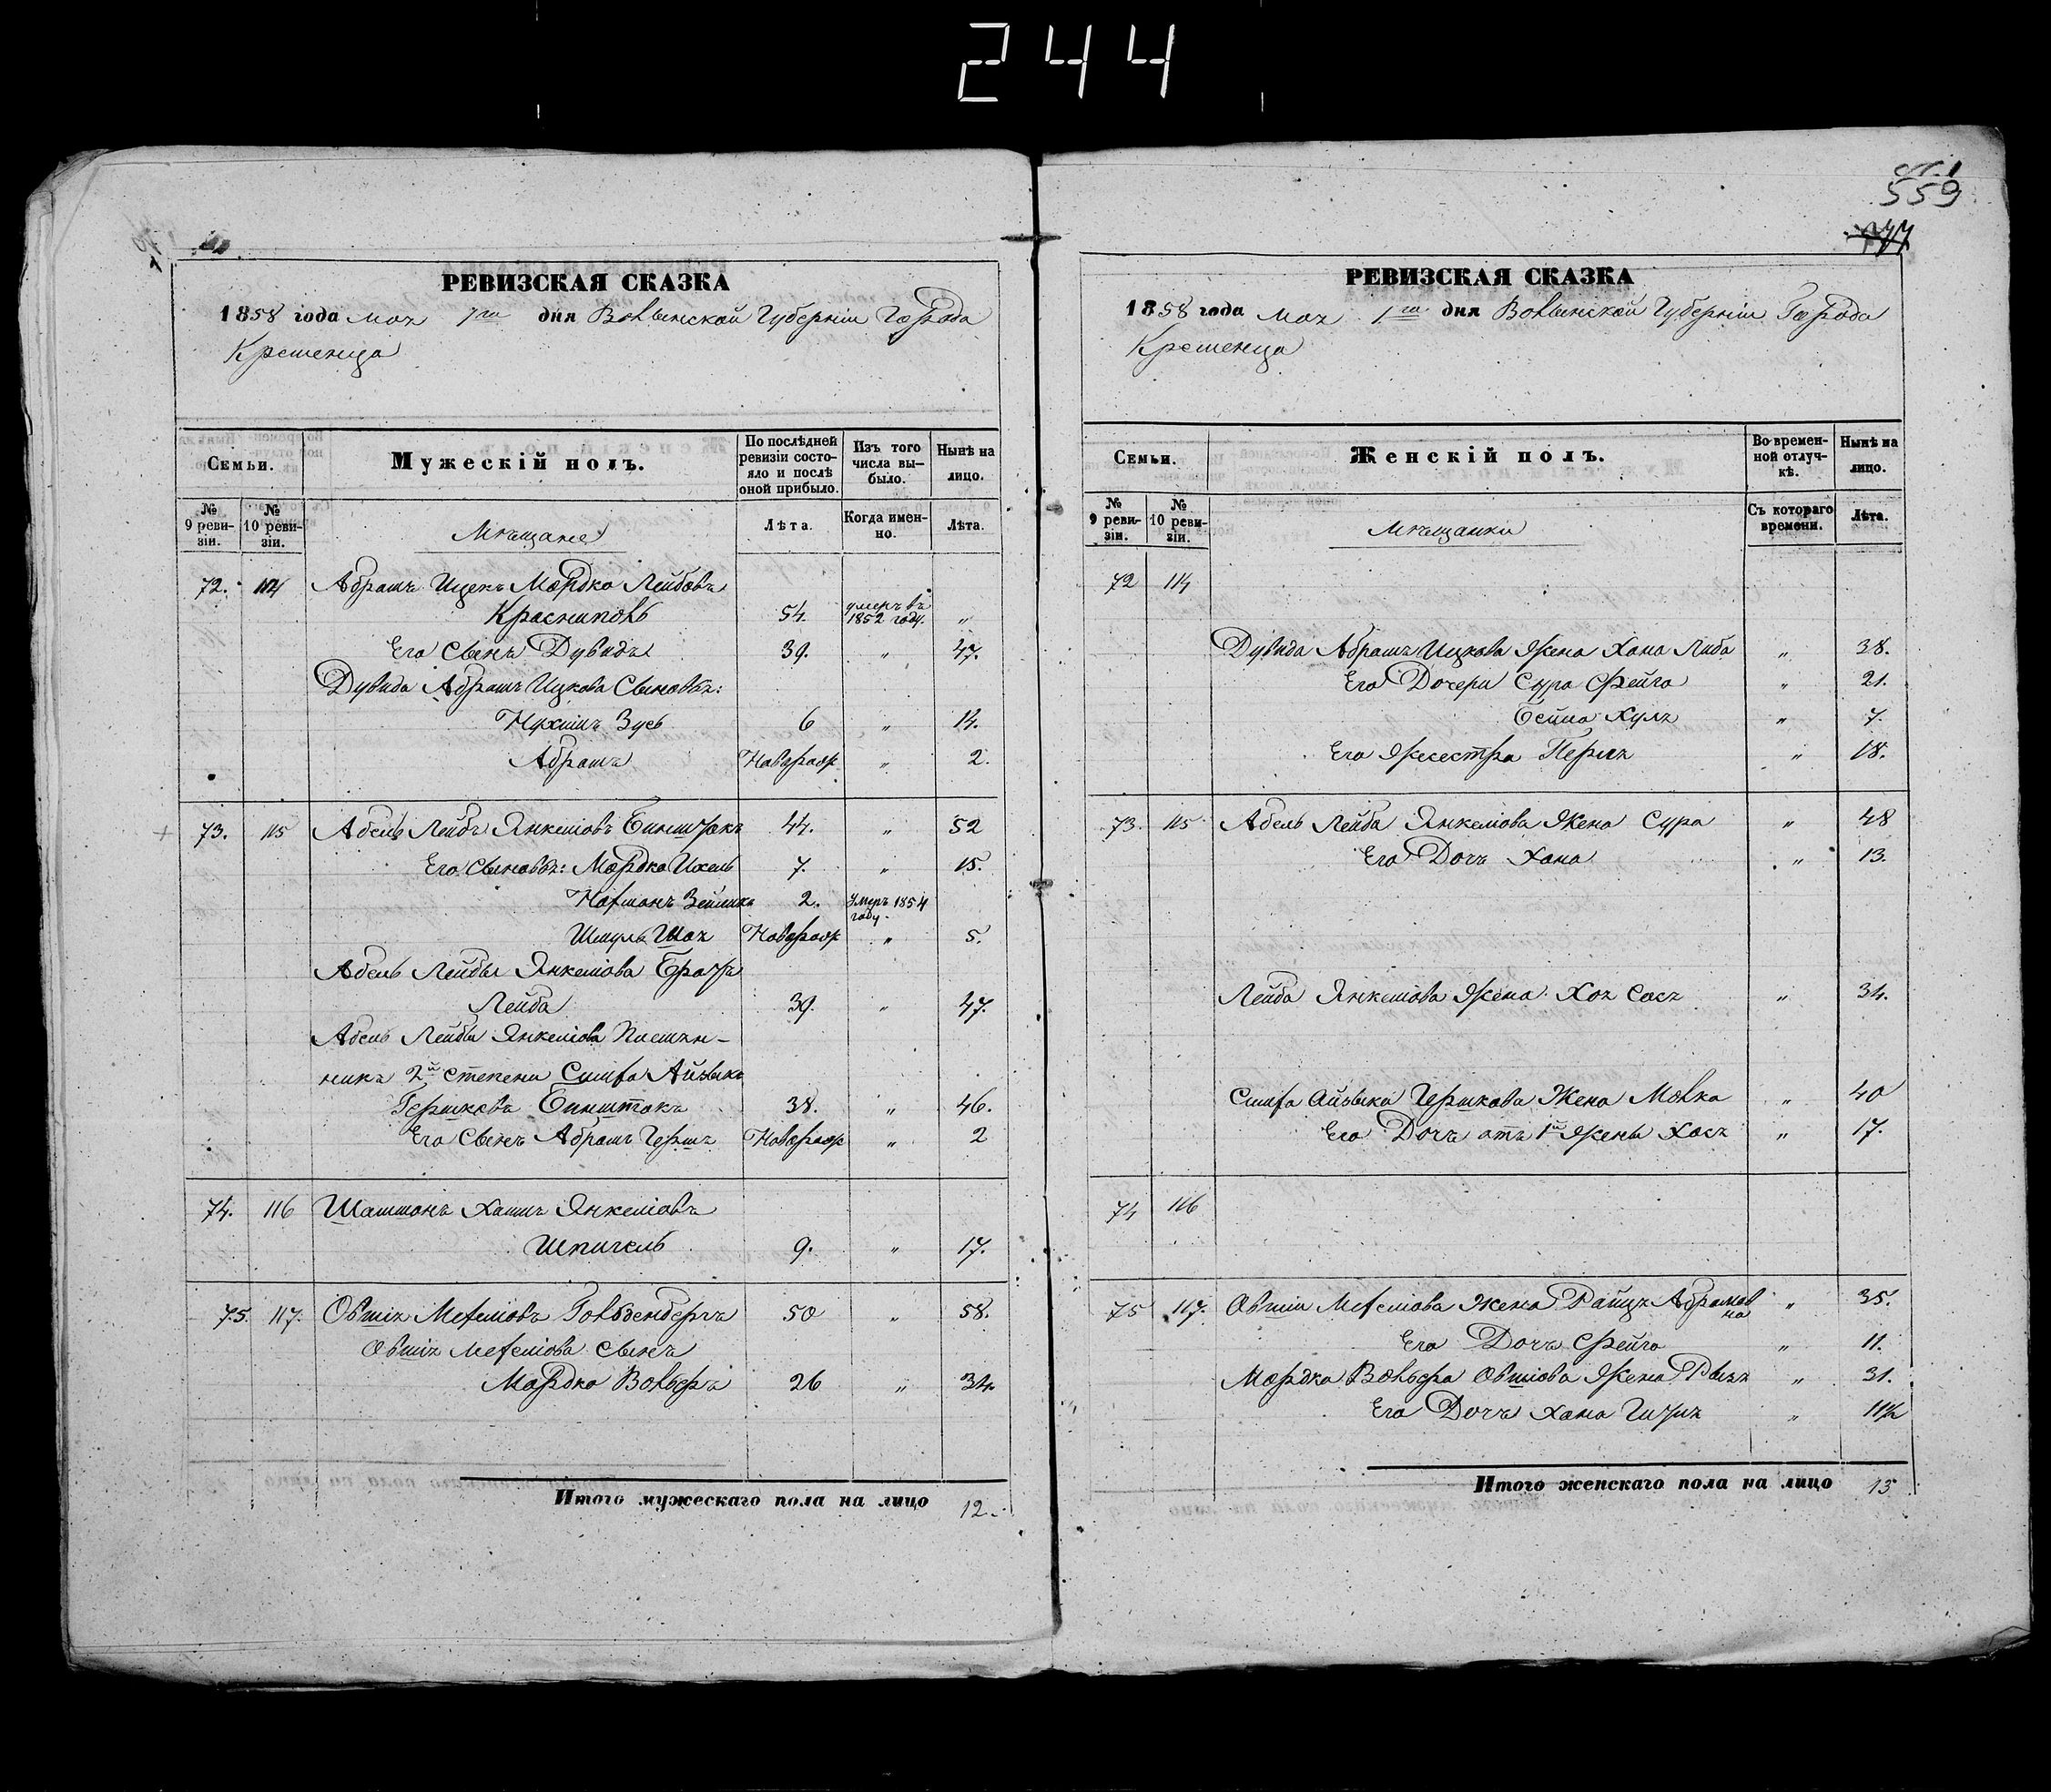 244
ст. 1
559
177
РЕВИЗСКАЯ СКАЗКА
1858 года мая 1го дня Волынской Губернiи Города
Кременца
Семьи.
Мужескiй полъ.
По послѣдней ревизiи состояло и послѣ оной прибыло.
Изъ того числа выбыло.
Нынѣ на лицо.
№ 9 ревизiи.
№ 10 ревизiи.
Мѣщане
Лѣта.
Когда именно.
Лѣта.
72. 114 Абрамъ Ицекъ Мордко Лейбовъ
Красниполь 54. умеръ въ 1852 году. „
Его Сынъ Дувидъ 39. „ 47.
Дувида Абрамъ Ицкова Сыновья:
Нухимъ Зусь 6 „ 14.
Абрамъ Новорож „ 2.
73. 115 Абель Лейбъ Янкелiовъ Бинштокъ 44. „ 52
Его Сыновья: Мордко Ихель 7. „ 15.
Нафтанъ 2. Умеръ 1854 году.
Шмуль Шая Новорож „ 5.
Абель Лейбы Янкелiова Братъ
Лейба 39. „ 47.
Абель Лейбы Янкелiова Племян-
никъ 2й степени Симха Айзыкъ
Гершковъ Бинштокъ 38. „ 46.
Его Сынъ Абрамъ Гершъ Новорож „ 2
74. 116 Шлiомонъ Хаимъ Янкелiовъ
Шпигель 9. „ 17.
75. 117. Овшiя Мехелiовъ Гольденбергъ 50 „ 58.
Овшiя Мехелiова сынъ
Мордко Вольферъ 26 „ 34.
Итого мужескаго пола на лицо 12.
РЕВИЗСКАЯ СКАЗКА
1858 года мая 1го дня Волынской Губернiи Города
Кременца
Семьи.
Женскiй полъ.
Во временной отлучкѣ.
Нынѣ на лицо.
№ 9 ревизiи.
№ 10 ревизiи.
Мѣщанки
Съ котораго времени.
Лѣта.
72 114
Дувида Абрамъ Ицкова Жена Хана Либа „ 38.
Его Дочери Сура Фейга „ 21.
Бейла Хуля „ 7.
Его Сестра Перля „ 18.
73. 115 Абель Лейба Янкелiова Жена Сура „ 48
Его Дочь Хана „ 13.
Лейба Янкелiова Жена Хая Сося „ 34.
Симха Айзыка Гершкова Жена Малка „ 40
Его Дочь отъ 1й Жены Хася „ 17.
74 116
75 117. Овшiи Мехелiова Жена Райца Абрамовна „ 35.
Его Дочь Фейга „ 11.
Мордка Вольфера Овшiова Жена Рыся „ 31.
Его Дочь Хана Гитля „ 11½
Итого женскаго пола на лицо 13